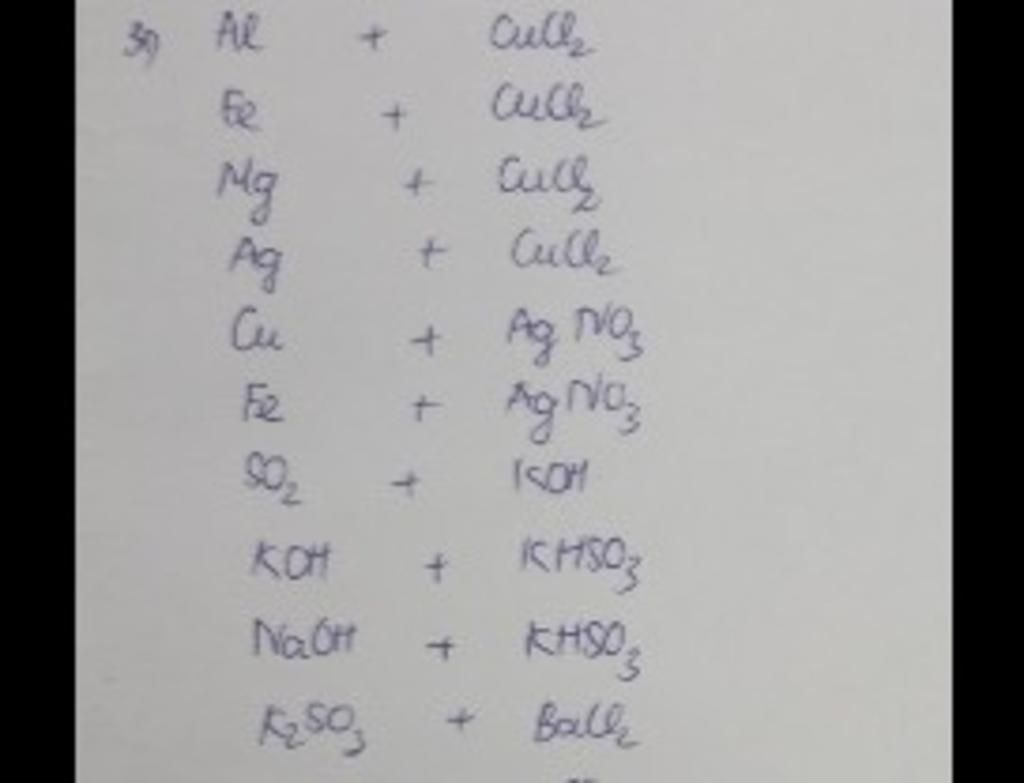 3) Al + CuCl2
Fe + CuCl2
Mg + CuCl2
Ag + CuCl2
Cu + AgNO3
Fe + AgNO3
SO2 + KOH
KOH + KHSO3
NaOH + KHSO3
K2SO3 + BaCl2